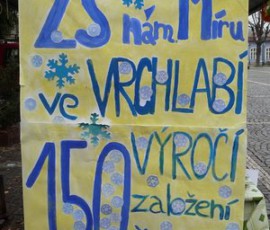 nám. Míru
ve VRCHLABÍ
150 VÝROČÍ
založení